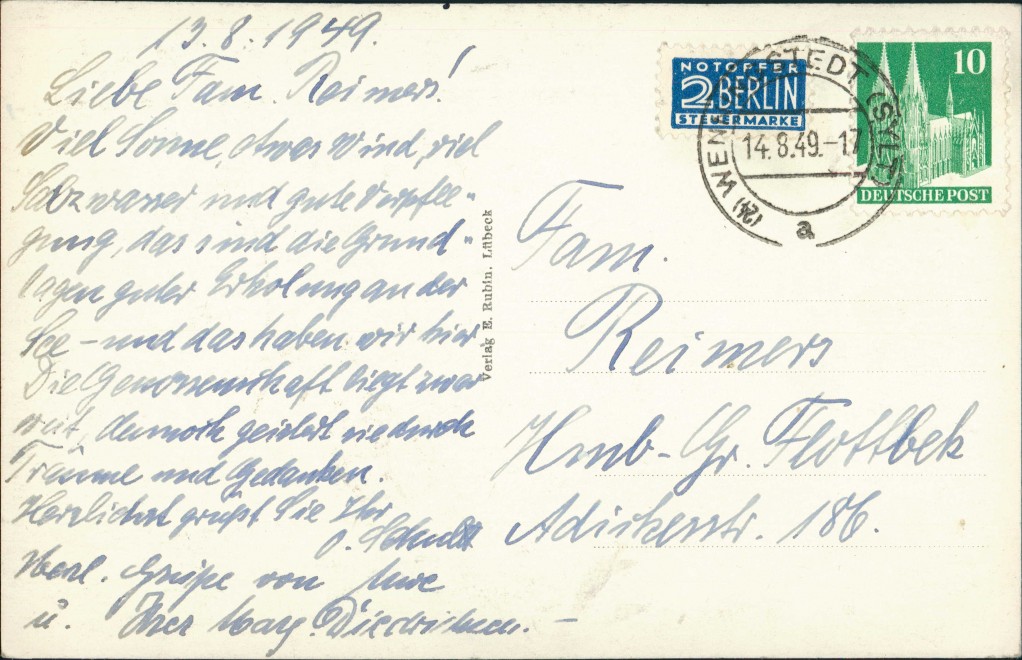 13.8.1949.
Liebe Fam. Reimers!
Viel Sonne, etwas Wind, viel
Salzwasser und gute Verpfle-
gung, das sind die Grund-
lagen guter Erholung an der
See - und das haben wir hier.
Die Genossenschaft liegt zwar
weit, dennoch geistert sie durch
Träume und Gedanken.
Herzlichst grüßt Sie Ihr
Herzl. Grüße von Uwe
u. Ihrer
Verlag E. Rubin, Lübeck
NOTOPFER
2 BERLIN
STEUERMARKE
(SYLT)
14.8.49.-17
(24)
a
10
DEUTSCHE POST
Fam.
Reimers
Hmb-Gr. Flottbek
Adickesstr. 186.